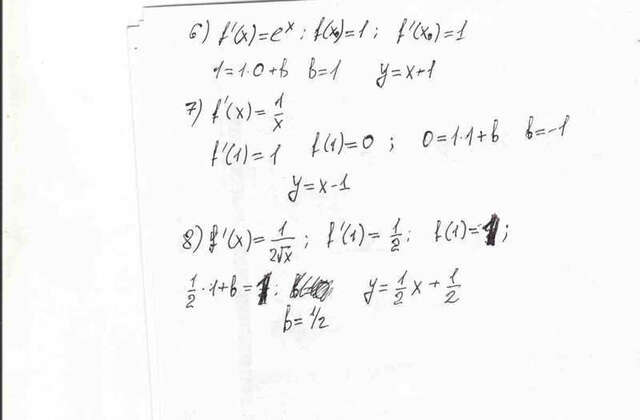 6) f'(x)=eˣ; f(x₀)=1; f'(x₀)=1
1=1·0+b b=1 y=x+1
7) f'(x)=1/x
f'(1)=1 f(1)=0; 0=1·1+b b=-1
y=x-1
8) f'(x)=1/(2√x); f'(1)=1/2; f(1)=1;
1/2·1+b=1; y=1/2x+1/2
b=1/2